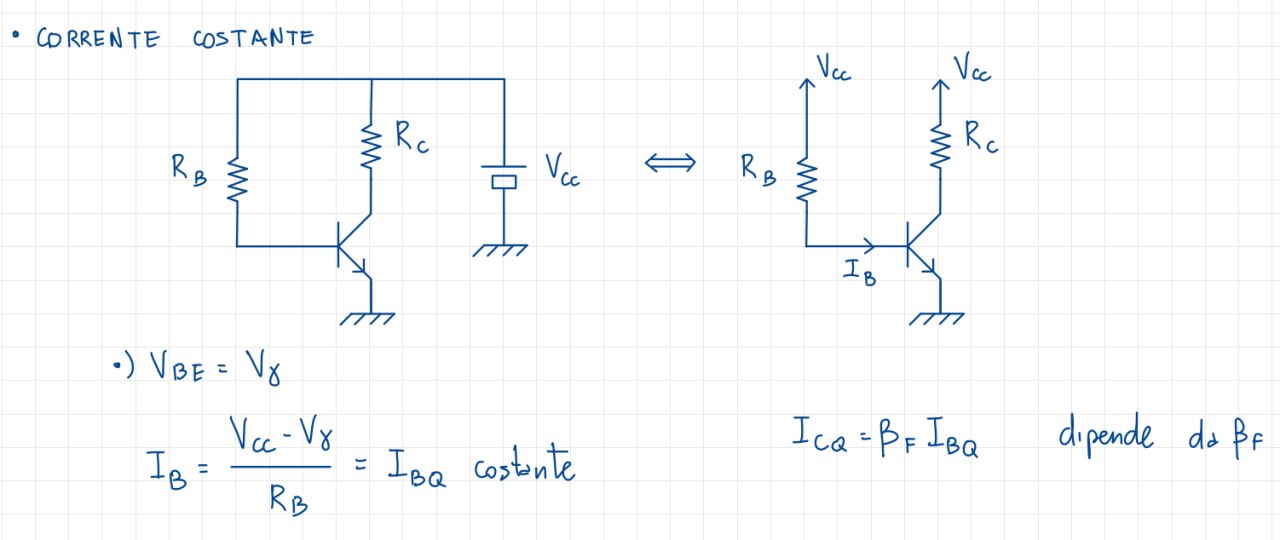 • CORRENTE COSTANTE
V_CC V_CC
R_B R_C V_CC ⟺ R_B R_C
I_B
•) V_BE = V_γ
I_B = (V_CC - V_γ) / R_B = I_BQ costante
I_CQ = β_F I_BQ dipende da β_F